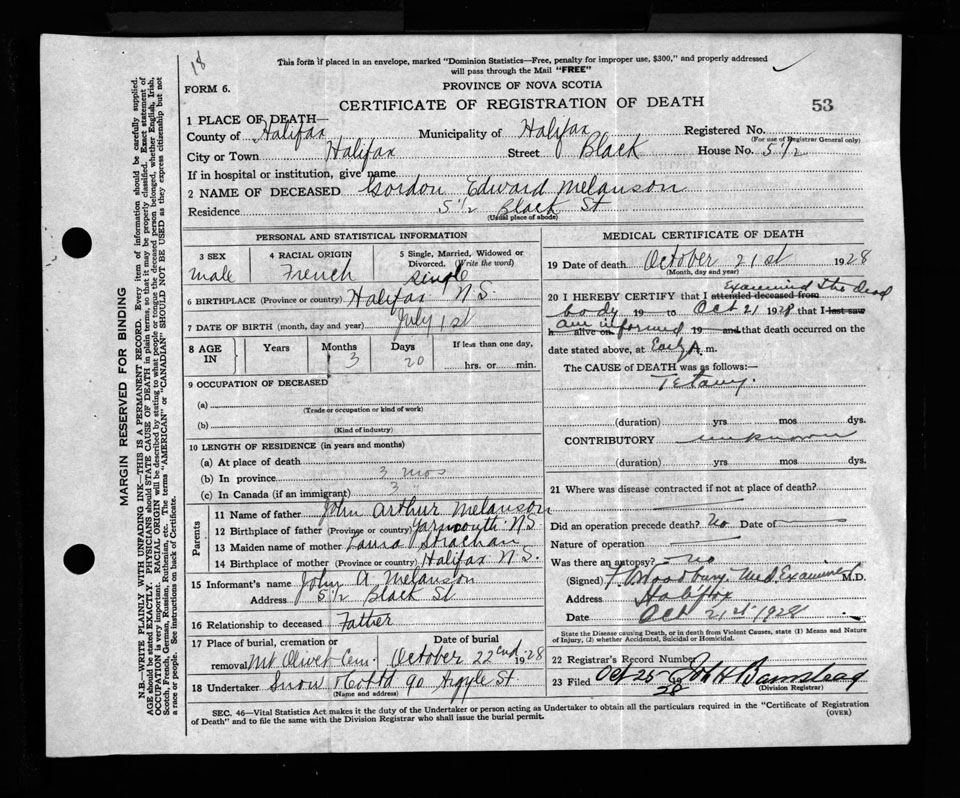 18
This form if placed in an envelope, marked "Dominion Statistics—Free, penalty for improper use, $300," and properly addressed
will pass through the Mail "FREE"
FORM 6.
PROVINCE OF NOVA SCOTIA
CERTIFICATE OF REGISTRATION OF DEATH
53
1 PLACE OF DEATH—
County of Halifax Municipality of Halifax Registered No.
(For use of Registrar General only)
City or Town Halifax Street Black House No. 5 1/2
If in hospital or institution, give name
2 NAME OF DECEASED Gordon Edward Melanson
Residence 5 1/2 Black St
(Usual place of abode)
PERSONAL AND STATISTICAL INFORMATION
3 SEX 4 RACIAL ORIGIN 5 Single, Married, Widowed or
Divorced. (Write the word)
male French single
6 BIRTHPLACE (Province or country) Halifax N.S.
7 DATE OF BIRTH (month, day and year) July 1st
8 AGE IN Years Months Days If less than one day,
3 20 hrs. or min.
9 OCCUPATION OF DECEASED
(a)
(Trade or occupation or kind of work)
(b)
(Kind of industry)
10 LENGTH OF RESIDENCE (in years and months)
(a) At place of death
(b) In province 3 mos
(c) In Canada (if an immigrant) 3 "
Parents
11 Name of father John Arthur Melanson
12 Birthplace of father (Province or country) Yarmouth N.S.
13 Maiden name of mother Laura Strachan
14 Birthplace of mother (Province or country) Halifax N.S.
15 Informant's name John A. Melanson
Address 5 1/2 Black St
16 Relationship to deceased Father
17 Place of burial, cremation or Date of burial
removal Mt Olivet Cem. October 22nd 1928
18 Undertaker Snow & Co Ltd 90 Argyle St.
(Name and address)
MEDICAL CERTIFICATE OF DEATH
19 Date of death October 21st 1928
(Month, day and year)
Examined the dead
20 I HEREBY CERTIFY that I attended deceased from
body 19 to Oct 21 1928 that I last saw
am informed
h alive on 19 and that death occurred on the
date stated above, at Early A.m.
The CAUSE of DEATH was as follows:—
Tetany.
(duration) yrs mos dys.
CONTRIBUTORY unknown
(duration) yrs mos dys.
21 Where was disease contracted if not at place of death?
Did an operation precede death? No Date of
Nature of operation
Was there an autopsy? no
(Signed) Woodbury Med Examiner M.D.
Address Halifax
Date Oct 21st 1928
State the Disease causing Death, or in death from Violent Causes, state (1) Means and Nature
of Injury, (2) whether Accidental, Suicidal or Homicidal.
22 Registrar's Record Number
23 Filed Oct 25 1928 Jno H Barnstead
(Division Registrar)
SEC. 46—Vital Statistics Act makes it the duty of the Undertaker or person acting as Undertaker to obtain all the particulars required in the "Certificate of Registration
of Death" and to file the same with the Division Registrar who shall issue the burial permit.
(OVER)
MARGIN RESERVED FOR BINDING
N.B.—WRITE PLAINLY WITH UNFADING INK—THIS IS A PERMANENT RECORD. Every item of information should be carefully supplied.
AGE should be stated EXACTLY. PHYSICIANS should STATE CAUSE OF DEATH in plain terms, so that it may be properly classified. Exact statement of
OCCUPATION is very important. RACIAL ORIGIN will be described by stating to what people or tongue the deceased person belonged, whether English, Irish,
Scotch, French, German, Russian, Ruthenian, etc. The terms "AMERICAN" or "CANADIAN" SHOULD NOT BE USED as they express citizenship but not
a race or people. See instructions on back of Certificate.